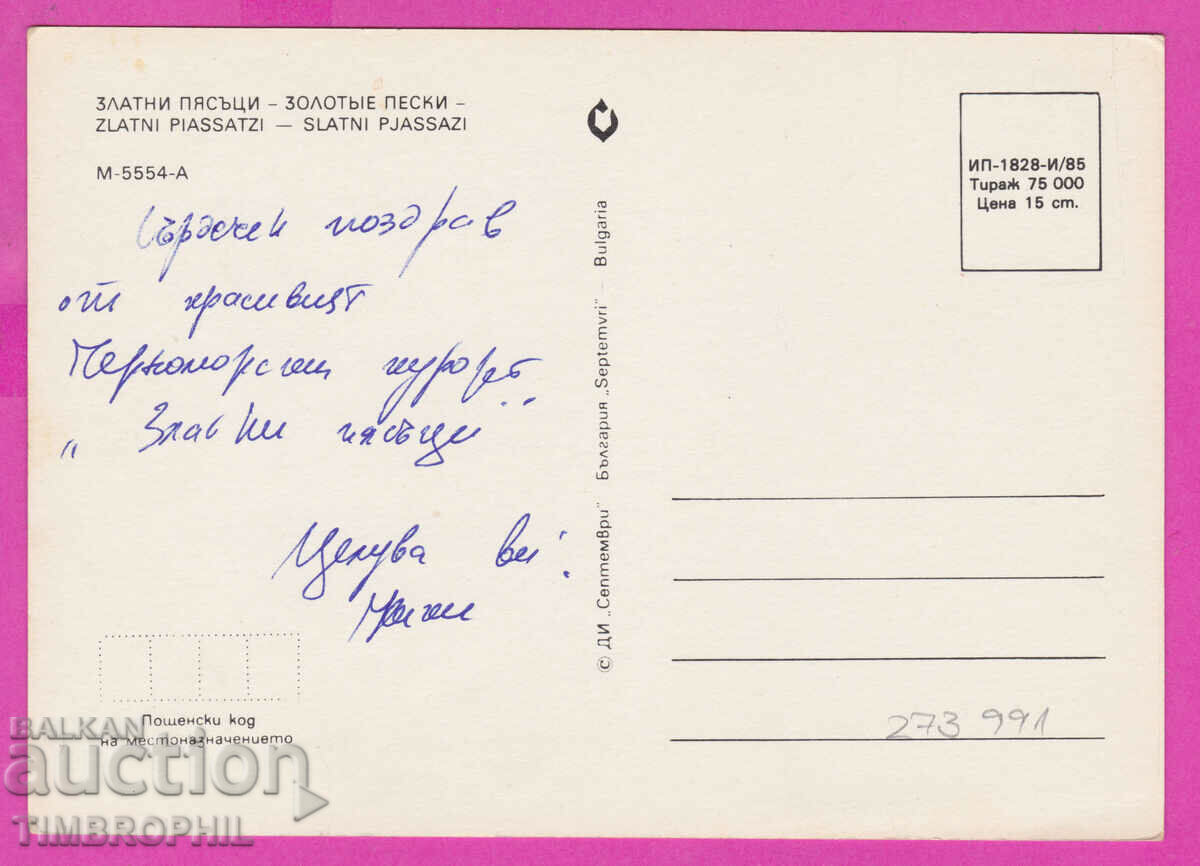 ЗЛАТНИ ПЯСЪЦИ – ЗОЛОТЫЕ ПЕСКИ –
ZLATNI PIASSATZI — SLATNI PJASSAZI
М-5554-А
Сърдечен поздрав
от красивият
Черноморски курорт
„ Златни пясъци "
Целува ви!
Пощенски код
на местоназначението
© ДИ „Септември" България „Septemvri" – Bulgaria
ИП-1828-И/85
Тираж 75 000
Цена 15 ст.
273 991
BALKAN
auction
TIMBROPHIL